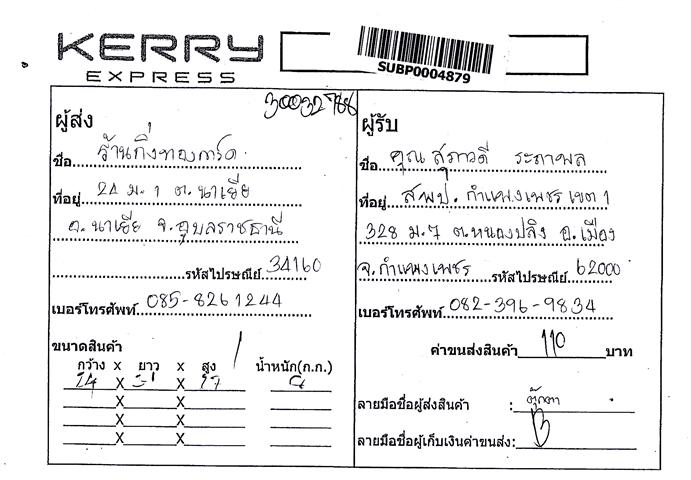 KERRY
EXPRESS
SUBP0004879
30032788
ผู้ส่ง
ชื่อ ร้านกิ่งทองการ์ด
ที่อยู่ 24 ม.1 ต.นาเยีย
อ.นาเยีย จ.อุบลราชธานี
รหัสไปรษณีย์ 34160
เบอร์โทรศัพท์ 085-8261244
ขนาดสินค้า
กว้าง x ยาว x สูง น้ำหนัก(ก.ก.)
X X
X X
X X
X X
ผู้รับ
ชื่อ คุณ สุภาวดี
ที่อยู่ สพป.กำแพงเพชร เขต 1
328 ม.7 ต.หนองปลิง อ.เมือง
จ.กำแพงเพชร รหัสไปรษณีย์ 62000
เบอร์โทรศัพท์ 082-396-9834
ค่าขนส่งสินค้า 110 บาท
ลายมือชื่อผู้ส่งสินค้า : ตุ๊กตา
ลายมือชื่อผู้เก็บเงินค่าขนส่ง: